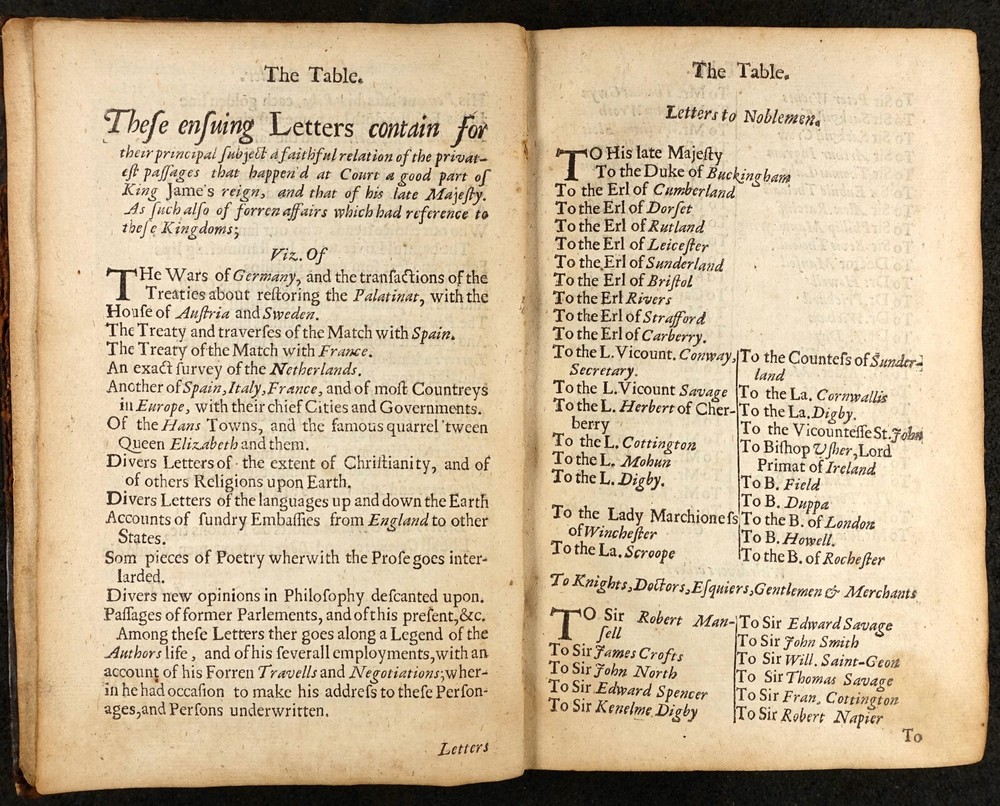 The Table.
Theſe enſuing Letters contain for
their principal ſubject a faithful relation of the privat-
eſt paſſages that happen'd at Court a good part of
King Jame's reign, and that of his late Majeſty.
As ſuch alſo of forren affairs which had reference to
theſe Kingdoms;
Viz. Of
THe Wars of Germany, and the tranſactions of the
Treaties about reſtoring the Palatinat, with the
Houſe of Auſtria and Sweden.
The Treaty and traverſes of the Match with Spain.
The Treaty of the Match with France.
An exact ſurvey of the Netherlands.
Another of Spain, Italy, France, and of moſt Countreys
in Europe, with their chief Cities and Governments.
Of the Hans Towns, and the famous quarrel 'tween
Queen Elizabeth and them.
Divers Letters of the extent of Chriſtianity, and of
of others Religions upon Earth.
Divers Letters of the languages up and down the Earth
Accounts of ſundry Embaſſies from England to other
States.
Som pieces of Poetry wherwith the Proſe goes inter-
larded.
Divers new opinions in Philoſophy deſcanted upon.
Paſſages of former Parlements, and of this preſent, &c.
Among theſe Letters ther goes along a Legend of the
Authors life, and of his ſeverall employments, with an
account of his Forren Travells and Negotiations; wher-
in he had occaſion to make his addreſs to theſe Perſon-
ages, and Perſons underwritten.
Letters
The Table.
Letters to Noblemen.
TO His late Majeſty
To the Duke of Buckingham
To the Erl of Cumberland
To the Erl of Dorſet
To the Erl of Rutland
To the Erl of Leiceſter
To the Erl of Sunderland
To the Erl of Briſtol
To the Erl Rivers
To the Erl of Strafford
To the Erl of Carberry.
To the L. Vicount. Conway,
Secretary.
To the L. Vicount Savage
To the L. Herbert of Cher-
berry
To the L. Cottington
To the L. Mohun
To the L. Digby.
To the Lady Marchioneſs
of Wincheſter
To the La. Scroope
To the Counteſs of Sunder-
land
To the La. Cornwallis
To the La. Digby.
To the Vicounteſſe St. John
To Biſhop Uſher, Lord
Primat of Ireland
To B. Field
To B. Duppa
To the B. of London
To B. Howell.
To the B. of Rocheſter
To Knights, Doctors, Eſquiers, Gentlemen & Merchants
TO Sir Robert Man-
ſell
To Sir James Crofts
To Sir John North
To Sir Edward Spencer
To Sir Kenelme Digby
To Sir Edward Savage
To Sir John Smith
To Sir Will. Saint-Geon
To Sir Thomas Savage
To Sir Fran. Cottington
To Sir Robert Napier
To